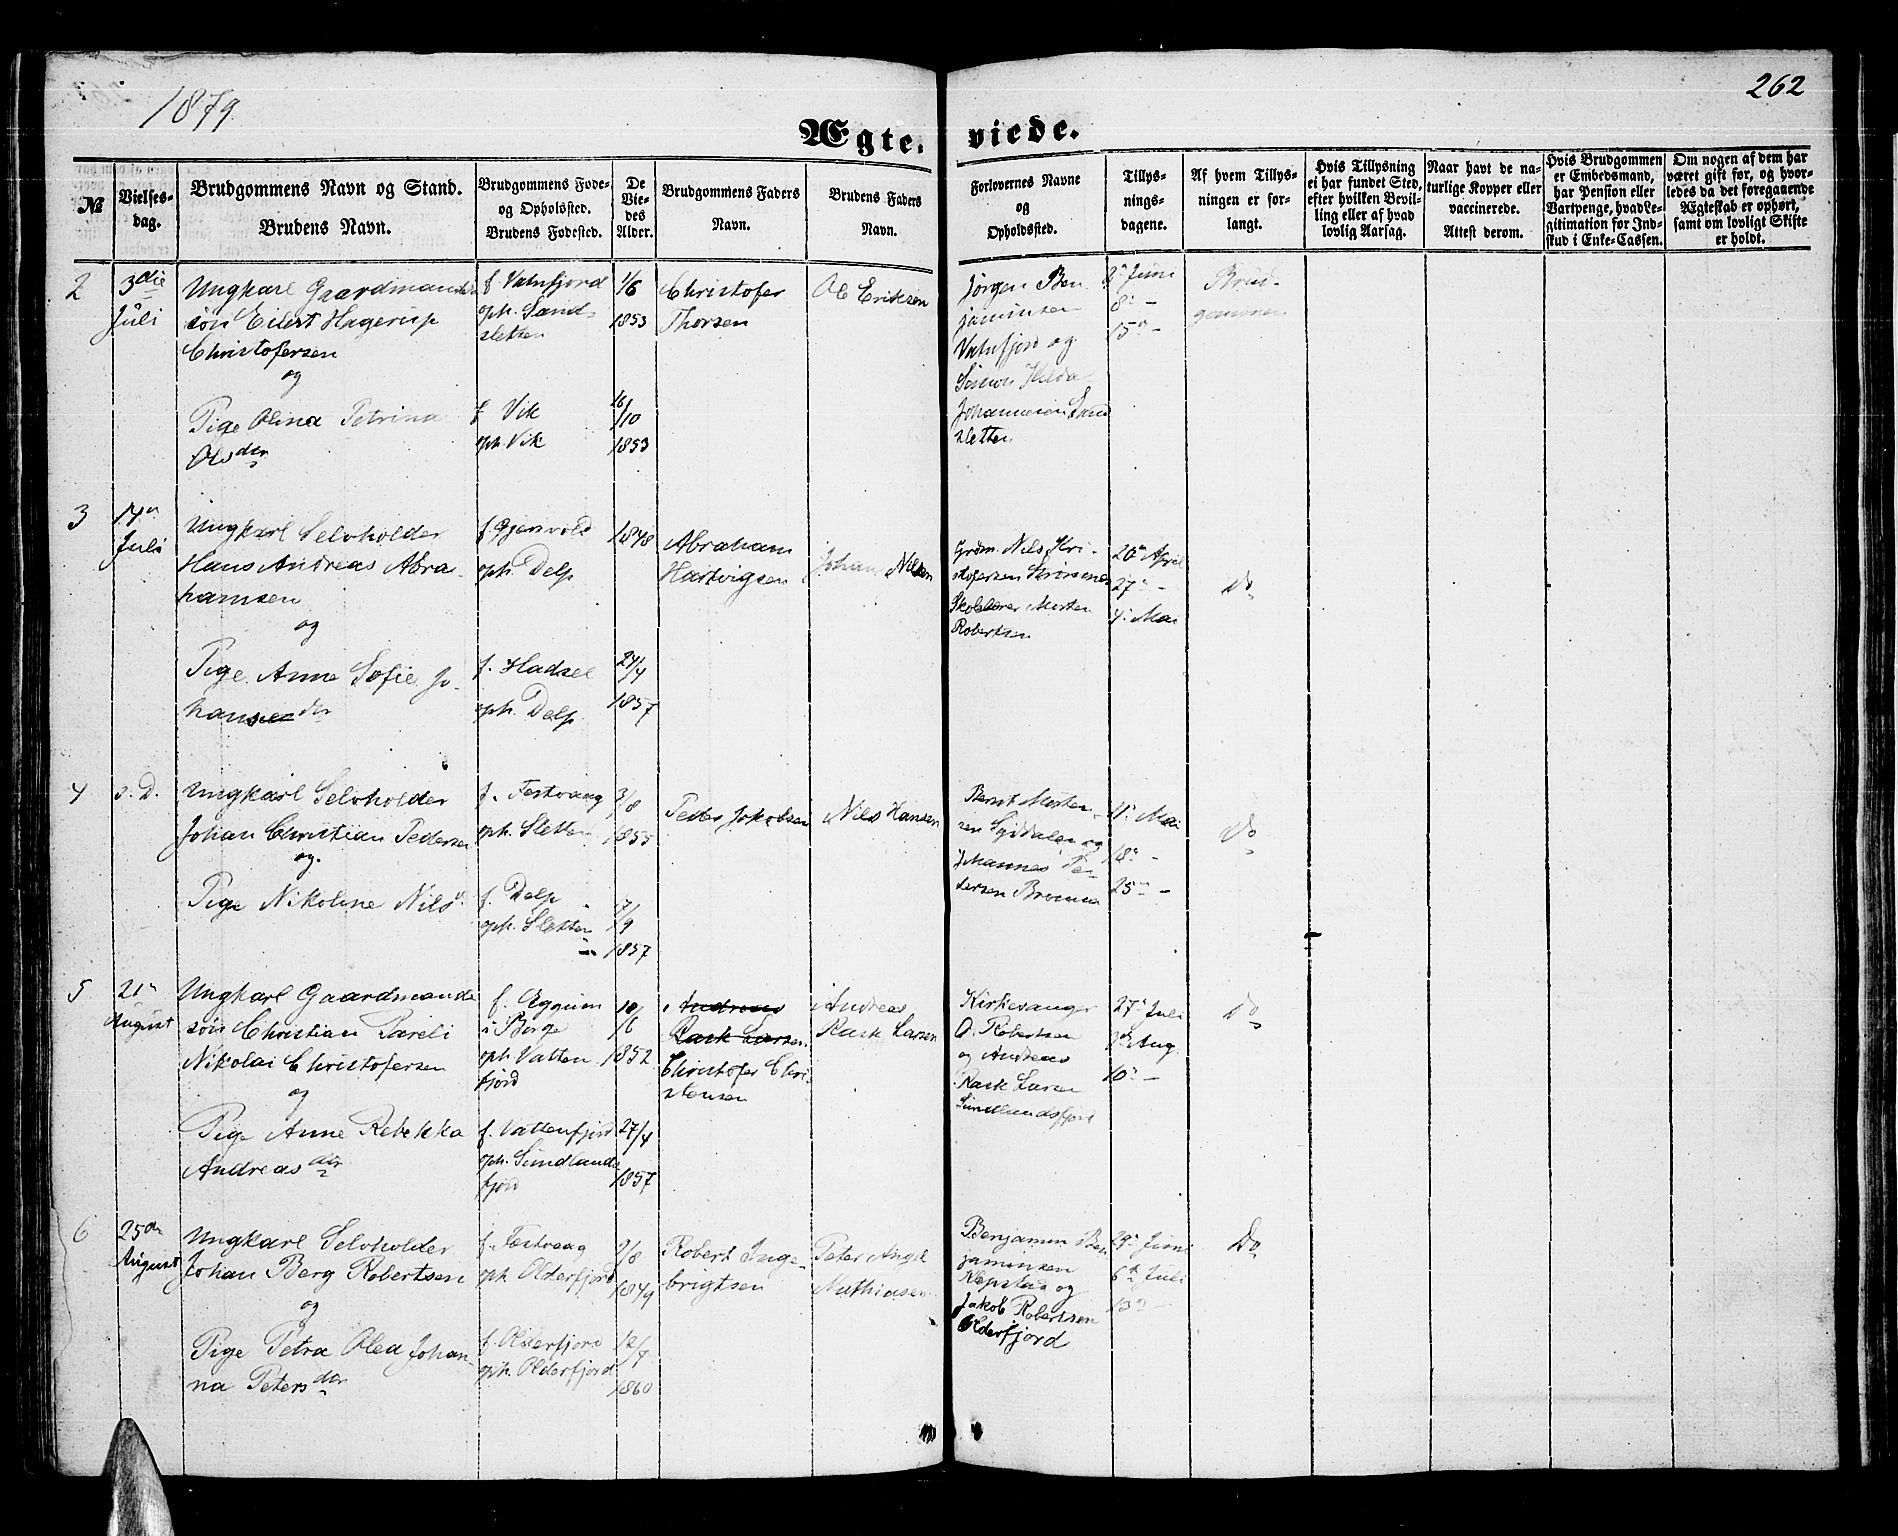 1879
262
Ægte-
viede.
№
Vielses-
dag.
Brudgommens Navn og Stand.
Brudens Navn.
Brudgommens Føde-
og Opholdsted.
Brudens Fødested.
De
Vie-
des
Alder.
Brudgommens Faders
Navn.
Brudens Faders
Navn.
Forlovernes Navne
og
Opholdssted.
Tillys-
nings-
dagene.
Af hvem Tillys-
ningen er for-
langt.
Hvis Tillysning
ei har fundet Sted,
efter hvilken Bevil-
ling eller af hvad
lovlig Aarsag.
Naar havt de na-
turlige Kopper eller
vaccinerede.
Attest derom.
Hvis Brudgommen
er Embedsmand,
har Pension eller
Vartpenge, hvad Le-
gitimation for Ind-
skud i Enke-Cassen.
Om nogen af dem har
været gift før, og hvor-
ledes da det foregaaende
Ægteskab er ophørt,
samt om lovligt Skifte
er holdt.
2
3die
Juli
Ungkarl Gaardmands
søn Eilert Hagerup
Christofersen
og
Pige Olina Petrina
Olsdtr
f Vatnfjord
oph. Sand-
sletten
f Vik
oph. Vik
1/6
1853
16/10
1853
Christofer
Thorsen
Ole Eriksen
Jørgen Ben
jaminsen
Vatnfjord og
Johannesen Sand
sletten
Juni
8de -
15de -
Brud-
gommen
3
14de
Juli
Ungkarl Selvholder
Hans Andreas Abra-
hamsen
og
Pige Anne Sofie Jo-
hansdtr
f Gjersvold
oph. Delp
f. Hadsel
oph. Delp
1848
24/4
1857
Abraham
Hartvigsen
Johan Nilsen
Grdm. Nils Kri-
stofersen
Skolelærer Morten
Robertsen
20de April
27de -
4de Mai
Do
4
s. D.
Ungkarl Selvholder
Johan Christian Pedersen
og
Pige Nikoline Nilsd
f. Festvaag
oph. Sletten
f. Delp
oph. Sletten
3/8
1855
7/9
1857
Peder Jakobsen
Nils Hansen
Bernt Morten-
sen Sydalen og
Johannes Pe-
dersen Brenna
11te Mai
18de -
25de -
Do
5
21de
August
Ungkarl Gaardmands
søn Christian Pareli
Nikolai Christofersen
og
Pige Anne Rebekka
Andreasdtr
f. Eggum
i Borge
oph. Vatten
fjord
f. Vattenfjord
oph. Sundlands
fjord
10/6
1852
27/4
1857
Andreas
Rask Larsen
Christofer Chri-
stensen
Andreas
Rask Larsen
Kirkesanger
O. Robertsen
og Andreas
Rask Larsen
Sundlandsfjord
27de Juli
3die Aug.
10de -
Do
6
25de
August
Ungkarl Selvholder
Johan Berg Robertsen
og
Pige Petra Olea Johan-
na Petersdtr
f. Festvaag
oph Olderfjord
f. Olderfjord
oph. Olderfjord
9/8
1849
12/7
1860
Robert Inge-
brigtsen
Peter Angel
Mathiasen
Benjamin Ben
jaminsen
Kepstad og
Jakob Robertsen
Olderfjord
29de Juni
6te Juli
13de -
Do